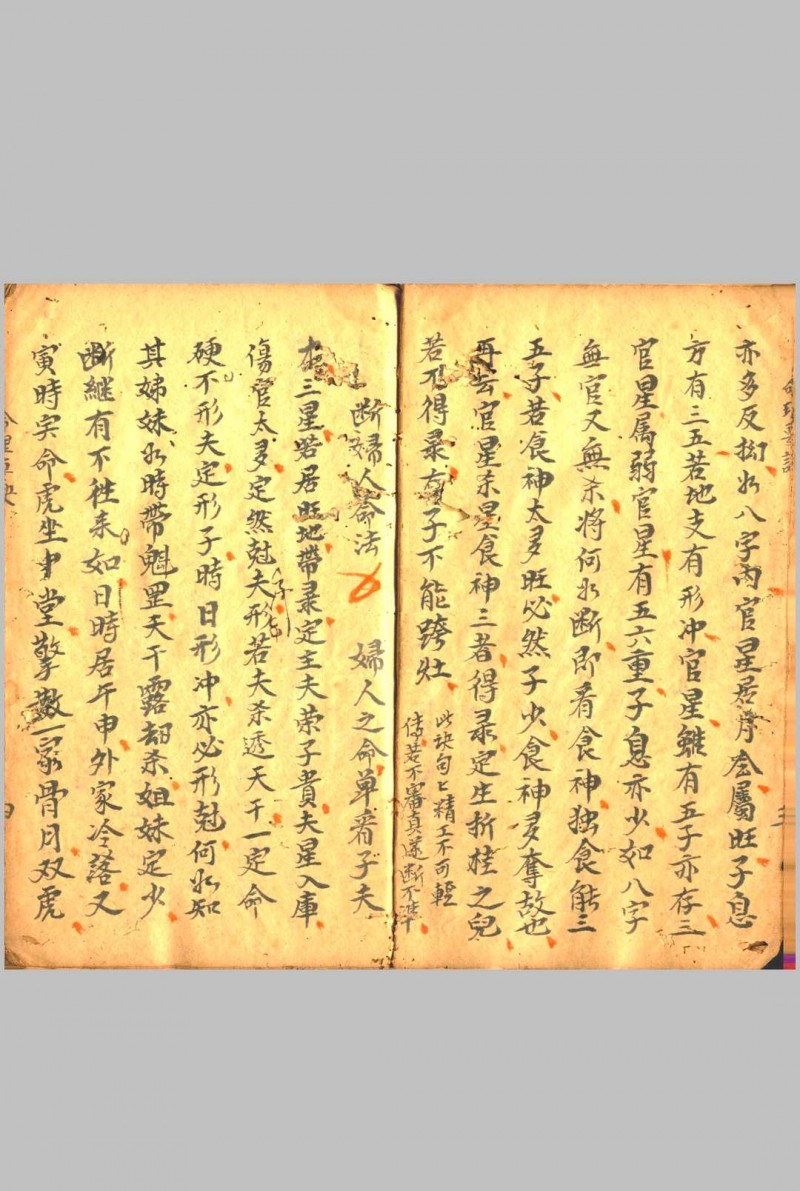 亦多反拗如八字內官星居月金屬旺子息
方有三五若地支有形冲官星虽有五子亦存三
官星属弱官星有五六重子息亦少如八字
無官又無杀将何如断即看食神独食能三
五子若食神太多旺必然子少食神多奪故也
再去官星杀星食神三者得彔定生折桂之兒
若不得彔有子不能跨灶
此訣句匕精工不可輕
传若不審真遂断不準
断婦人命法 婦人之命单看子夫
三星若居旺地帶彔定主夫荣子貴夫星入庫
傷官太多定然尅夫形若夫杀透天干一定命
子
硬不形夫定形子時日形冲亦必形尅何如知
其姊妹如時帶魁罡天干露刼杀姐妹定少
断継有不往来如日時居午申外家冷落又
寅時実命虎坐中堂擎散一家骨月双虎